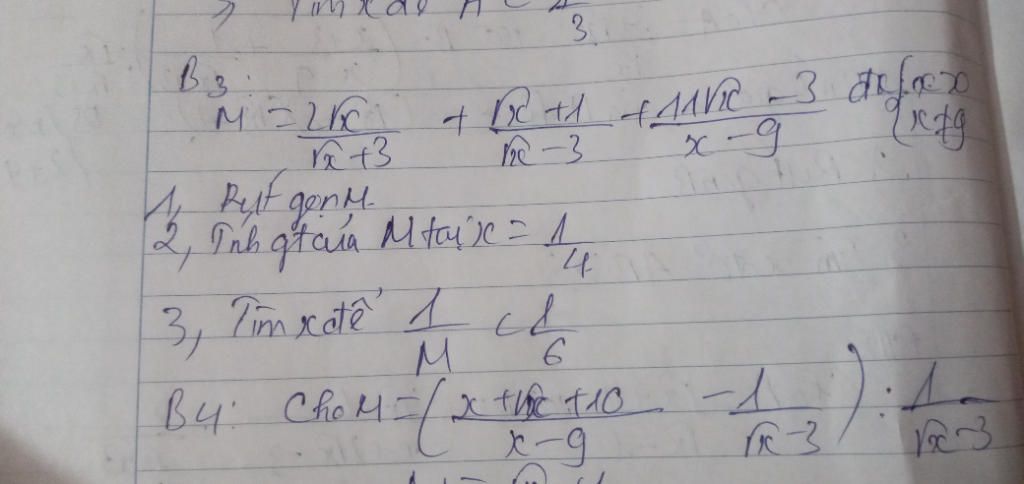 Tìm x để A < 1/3
B3:
M = 2√x/(√x + 3) + (√x + 1)/(√x - 3) + (11√x - 3)/(x - 9) đk { x > x ≠ 9
1, Rút gọn M.
2, Tính gt của M tại x = 1/4
3, Tìm x để 1/M < 1/6
B4: Cho M = ( (x + √x + 10)/(x - 9) - 1/(√x - 3) ) : 1/(√x - 3)